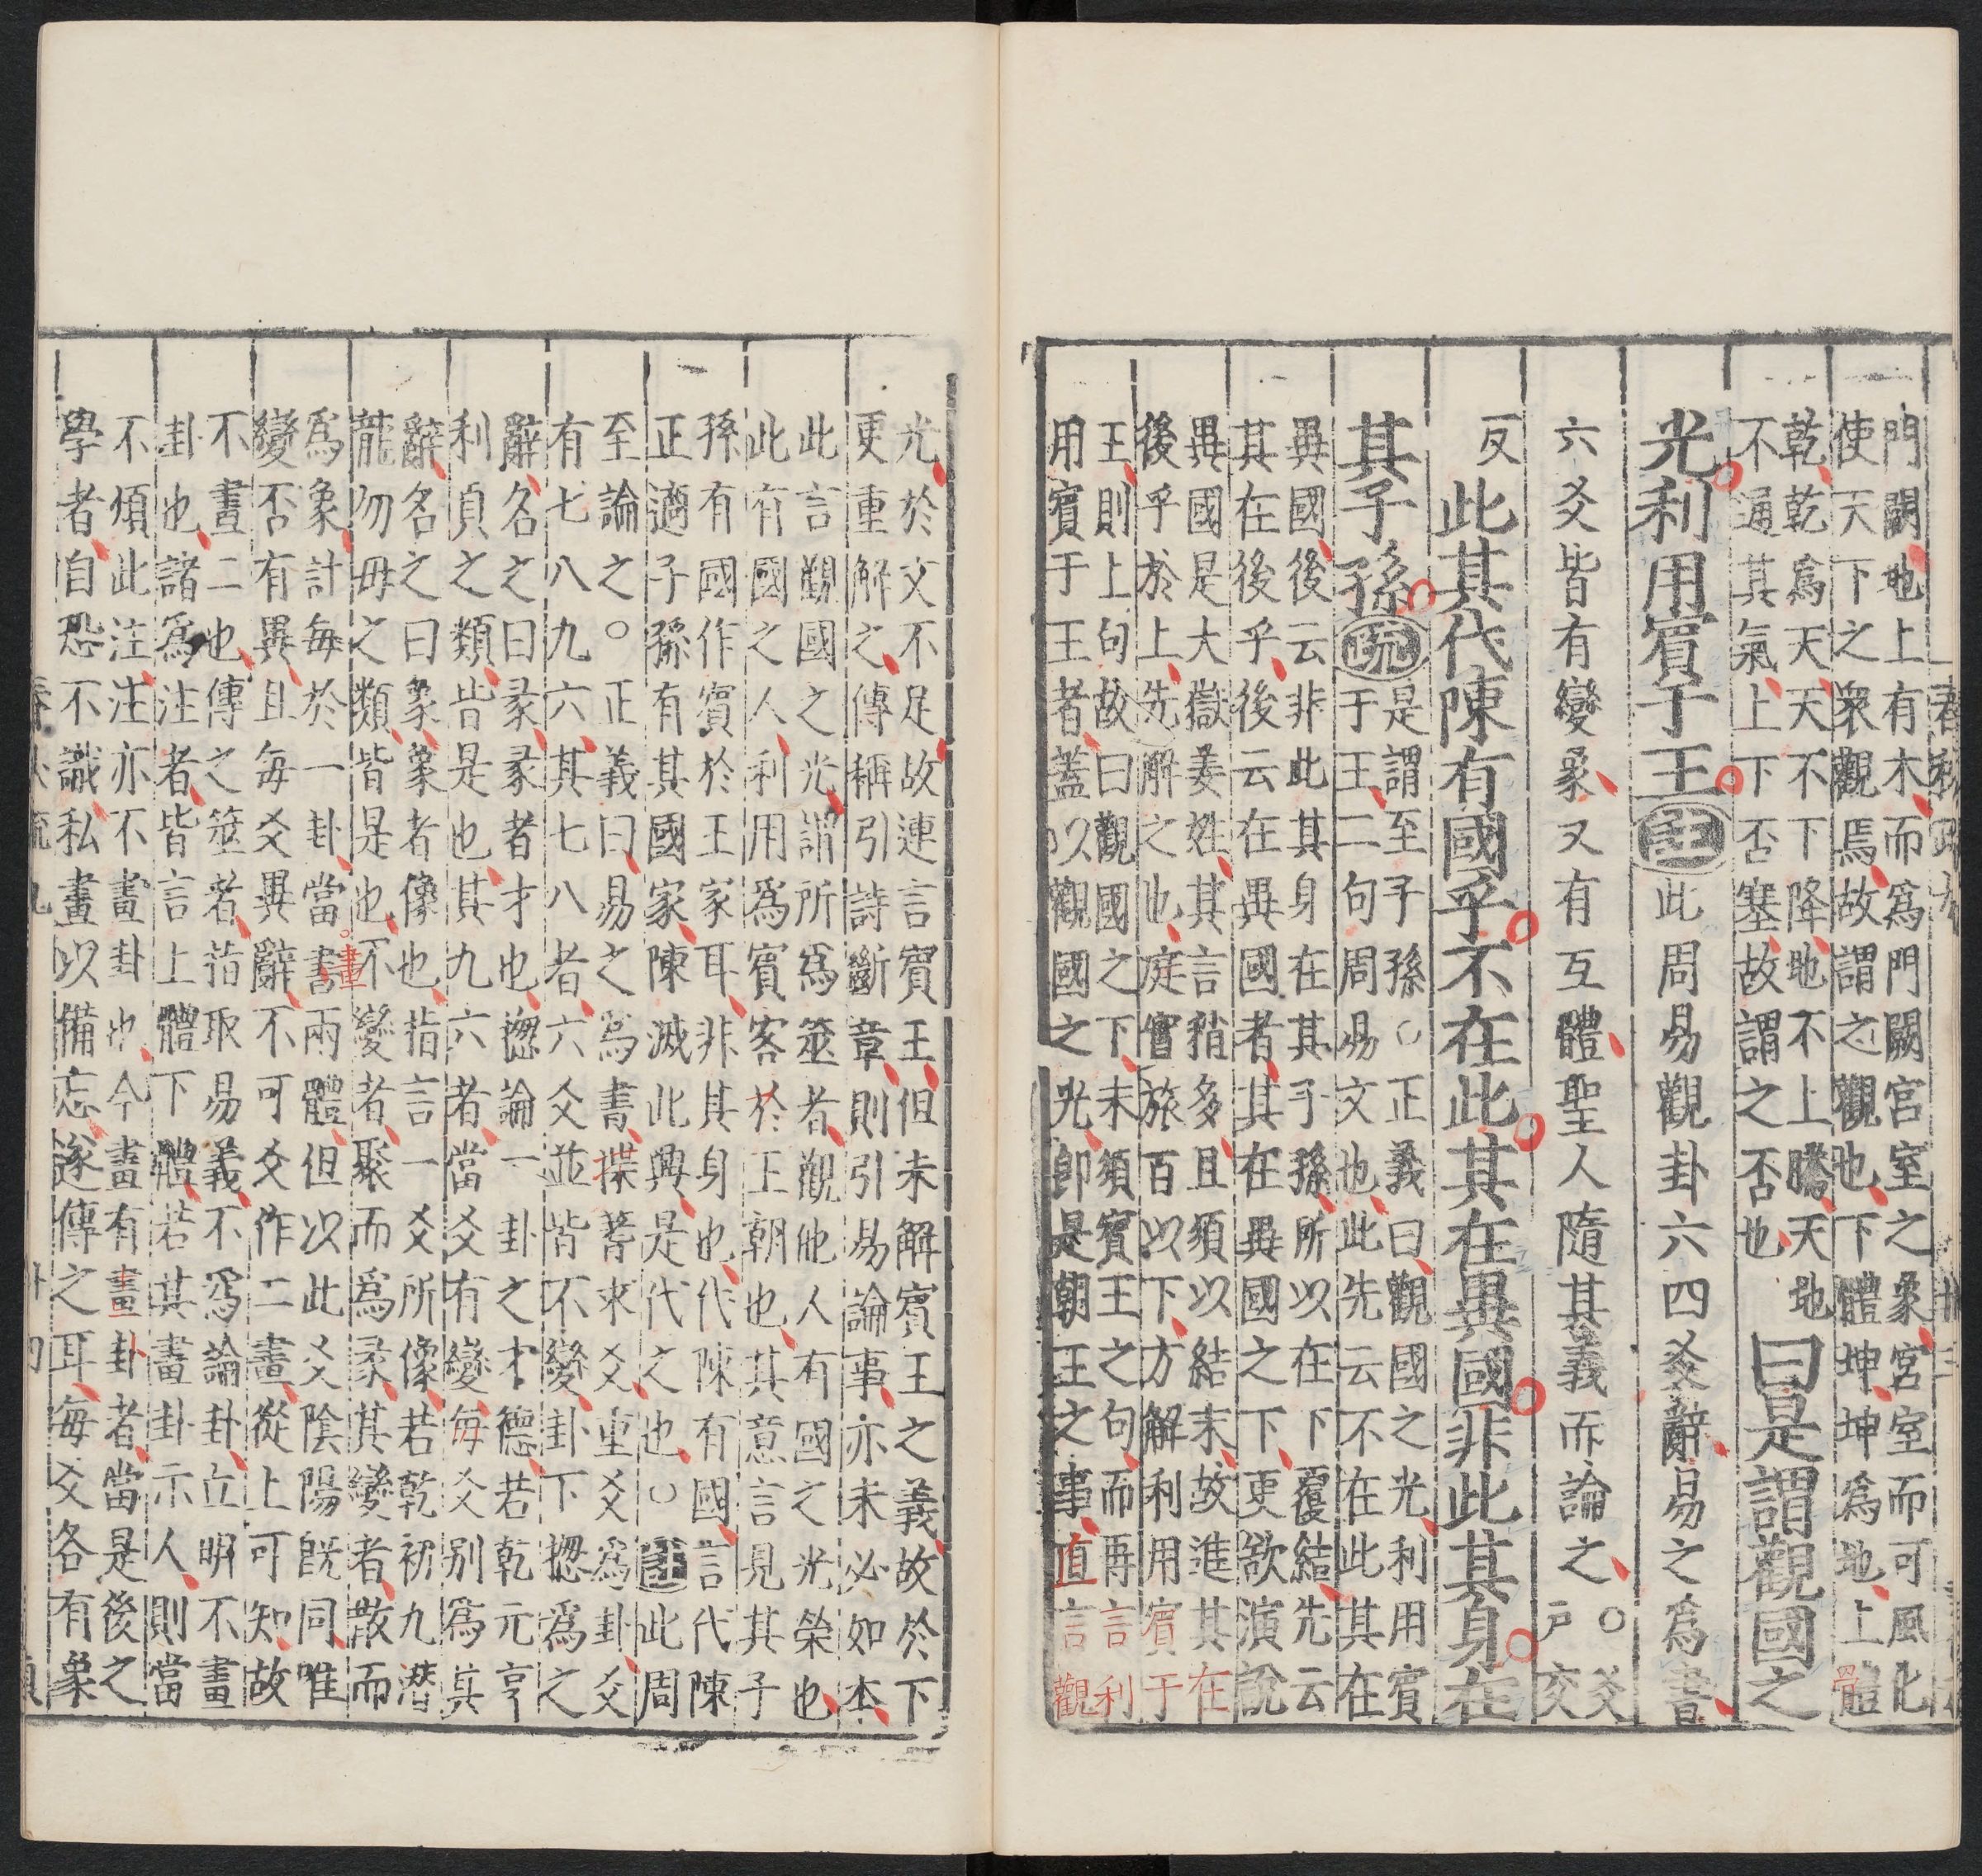 門闕地上有木而爲門闕宮室之象宮室而可風化
使天下之衆觀焉故謂之觀也下體坤坤爲地上體
乾乾爲天天不下降地不上騰天地
不通其氣上下否塞故謂之否也
曰是謂觀國之
光利用賓于王註此周易觀卦六四爻辭易之爲書
六爻皆有變象又有互體聖人隨其義而論之○爻
戶交
反
此其代陳有國乎不在此其在異國非此其身在
其子孫疏
是謂至子孫○正義曰觀國之光利用賓
于王二句周易文也此先云不在此其在
異國後云非此其身在其子孫所以在下覆結先云
其在後乎後云在異國者其在異國之下更欲演說
異國是大嶽姜姓其言稍多且須以結末故進其在
後乎於上先解之也庭實旅百以下方解利用賓于
王則上句故曰觀國之下未須賓王之句而再言利
用賓于王者蓋以觀國之光即是朝王之事直言觀
光於文不足故連言賓王但未解賓王之義故於下
更重解之傳稱引詩斷章則引易論事亦未必如本
此言觀國之光謂所爲筮者觀他人有國之光榮也
此有國之人利用爲賓客於王朝也其意言見其子
孫有國作賓於王家耳非其身也代陳有國言代陳
正適子孫有其國家陳滅此興是代之也○註此周
至論之○正義曰易之爲書揲蓍求爻重爻爲卦爻
有七八九六其七八者六爻並皆不變卦下揔爲之
辭名之曰彖彖者才也揔論一卦之才德若乾元亨
利貞之類皆是也其九六者當爻有變每爻別爲其
辭名之曰象象者像也指言一爻所像若乾初九潛
龍勿用之類皆是也不變者聚而爲彖其變者散而
爲象計每於一卦當書畫兩體但以此爻陰陽旣同唯
變否有異且每爻異辭不可爻作二畫從上可知故
不畫二也傳之筮者指取易義不爲論卦立明不畫
卦也諸爲注者皆言上體下體若其畫卦示人則當
不煩此注注亦不畫卦也今畫有畫卦者當是後之
學者自恐不識私畫以備忘遂傳之耳每爻各有象